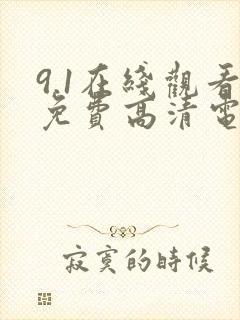 9.1在綫觀看
免費高清電
寂寞的時候